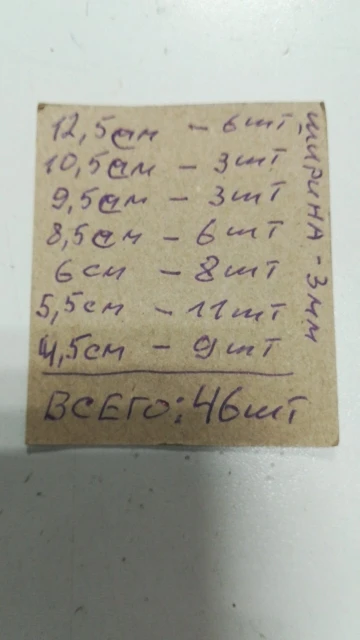 12,5см - 6шт,
10,5см - 3шт
9,5см - 3шт
8,5см - 6шт
6см - 8шт
5,5см - 11шт
4,5см - 9шт
ВСЕГО: 46шт
ШИРИНА - 3мм